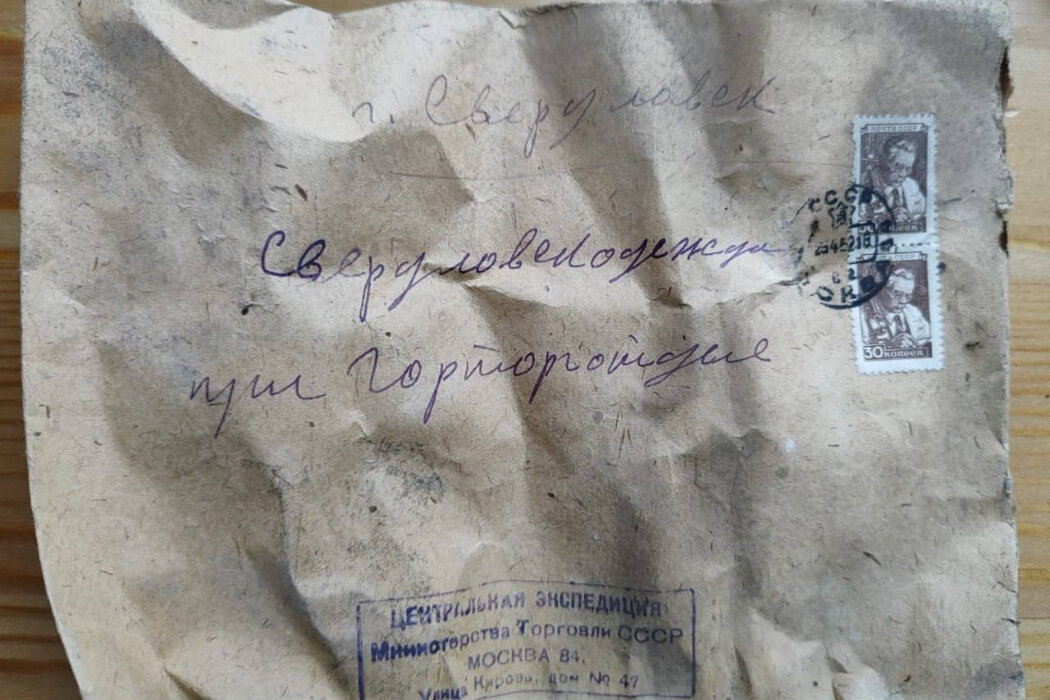 г. Свердловск
Свердловскодежда
при Горторготделе
ПОЧТА СССР
КОПЕЕК
30 КОПЕЕК
СССР
МОСКВА
ЦЕНТРАЛЬНАЯ ЭКСПЕДИЦИЯ
Министерства Торговли СССР
МОСКВА 84,
Улица Кирова, дом № 47